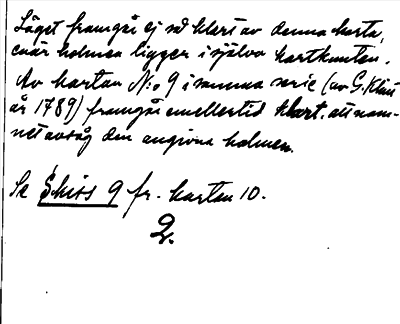 Läget framgår ej så klart av denna karta,
enär holmen ligger i själva kartkanten.
Av kartan N:o 9 i samma serie (av G. Klint
år 1789) framgår emellertid klart, att nam-
net avsåg den angivna holmen.
Se Skiss 9 fr. kartan 10.
2.